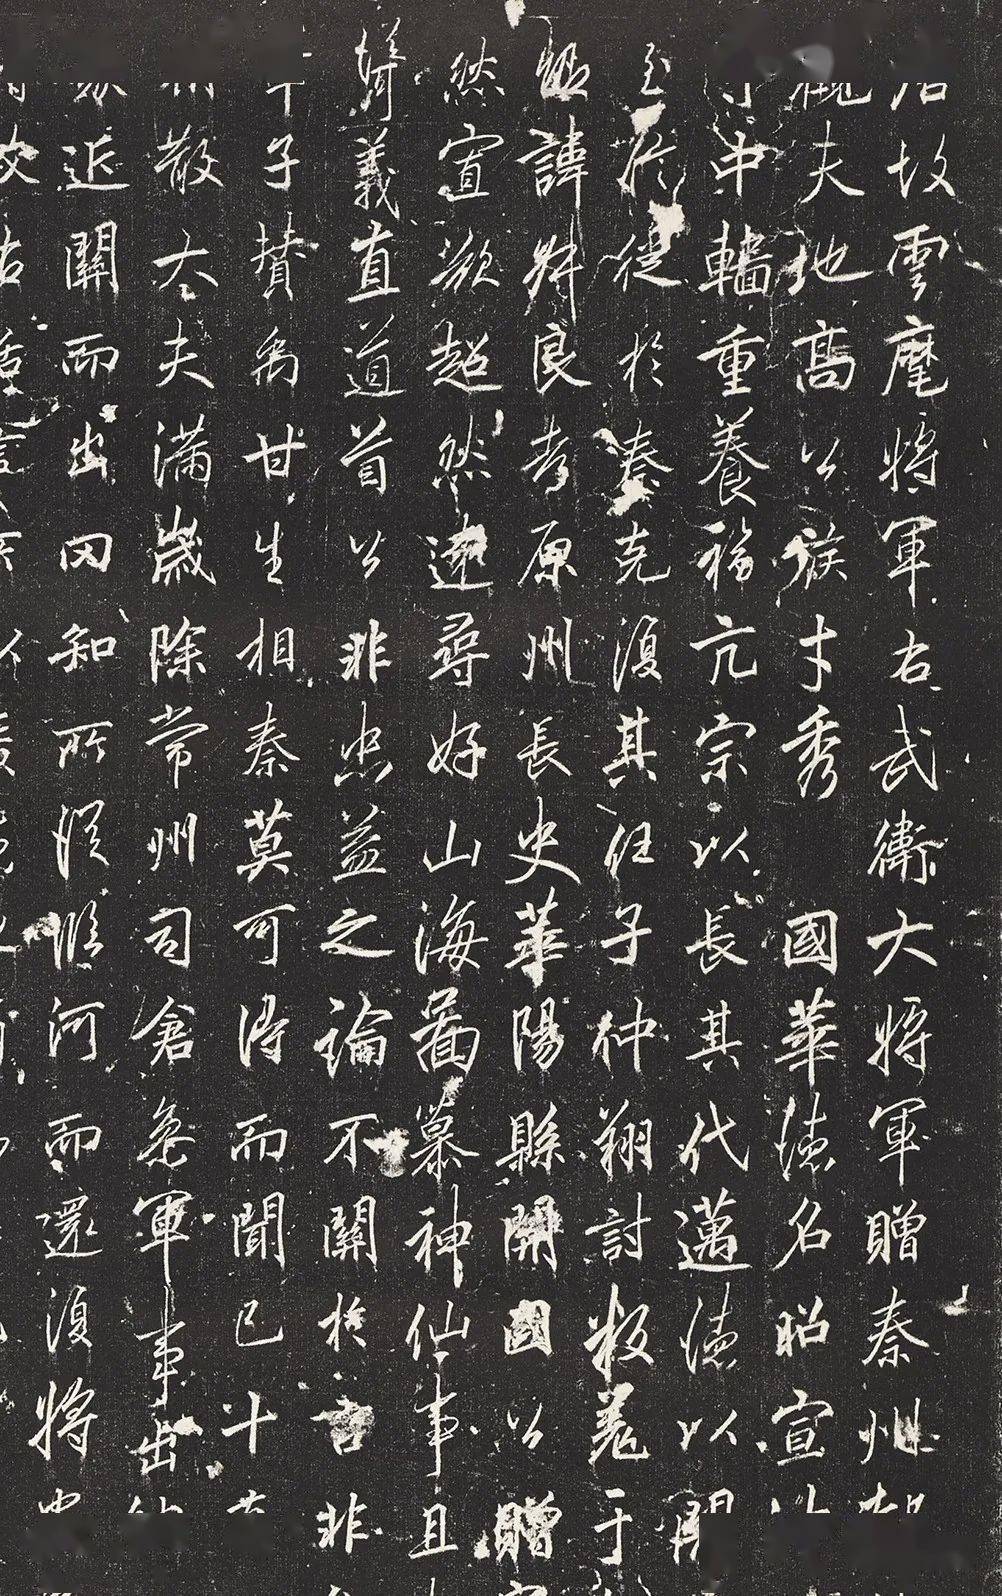 故雲麾將軍右武衛大將軍贈秦州都
觀夫地高公族才秀國華德名昭宣以
中轄重養福亢宗以長其代邁德以
至於徙於秦克復其任子仲翔討叛羌于
諱昇良考原州長史華陽縣開國公贈
然宦欲超然遠尋好山海圖慕神仙事且
義直道首公非忠益之論不關於言非
子贊禹甘生相秦莫可得而聞已十有
散大夫滿歲除常州司倉參軍事出
近關而出罔知所從惟河而還復將